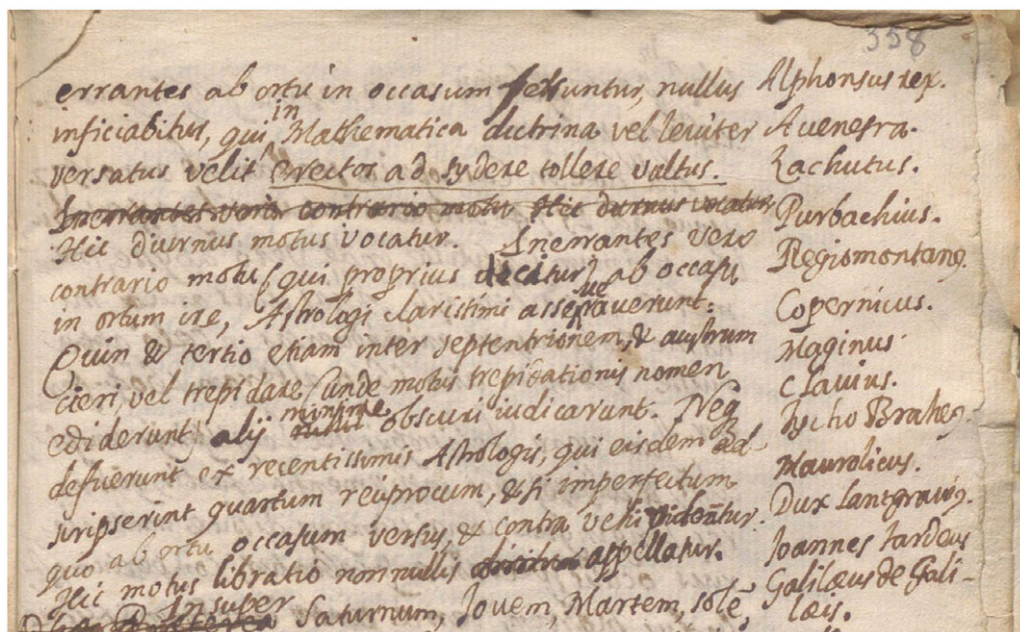 358
errantes ab ortu in occasum feruntur, nullus
inficiabitur, qui in Mathematica doctrina vel leviter
versatus velit erectos ad sydere tollere vultus.
Inerrantes vero contrario motu Hic diurnus vocatur
Hic diurnus motus vocatur. Inerrantes vero
contrario motu (qui proprius dicitur) ab occasu
in ortum ire, Astrologi clarissimi asseveraverunt:
Quin & tertio etiam inter septentrionem, & austrum
cieri, vel trepidare (unde motus trepidationis nomen
ediderunt) alij minime obscuri iudicarunt. Neq
defuerunt ex recentissimis Astrologis, qui eisdem ad
scripserint quartum reciprocum, & si imperfectum
quo ab ortu occasum versus, & contra vehi videātur.
Hic motus libratio nonnullis appellatur.
Insuper Saturnum, Jovem, Martem, solē,
Alphonsus rex.
Avenesra.
Zachutus.
Purbachius.
Regiomontanꝰ.
Copernicus.
Maginus
Clavius.
Tycho Braheꝰ.
Maurolicus.
Dux Lantgraviꝰ.
Joannes Tardeus
Galilæus de Gali-
læis.